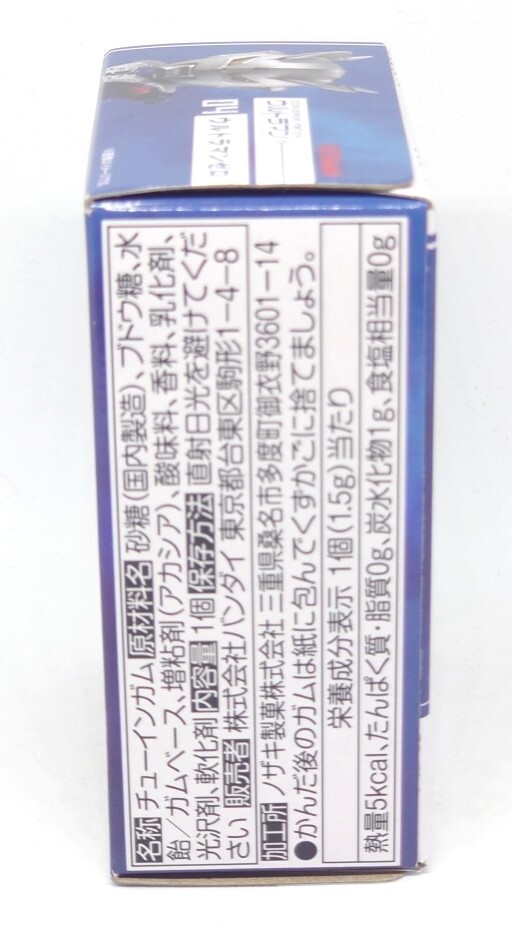 名称 チューインガム 原材料名 砂糖(国内製造)、ブドウ糖、水
飴／ガムベース、増粘剤(アカシア)、酸味料、香料、乳化剤、
光沢剤、軟化剤 内容量 1個 保存方法 直射日光を避けてくだ
さい 販売者 株式会社バンダイ 東京都台東区駒形1-4-8
加工所 ノザキ製菓株式会社 三重県桑名市多度町御衣野3601-14
●かんだ後のガムは紙に包んでくずかごに捨てましょう。
栄養成分表示 1個(1.5g)当たり
熱量5kcal、たんぱく質・脂質0g、炭水化物1g、食塩相当量0g